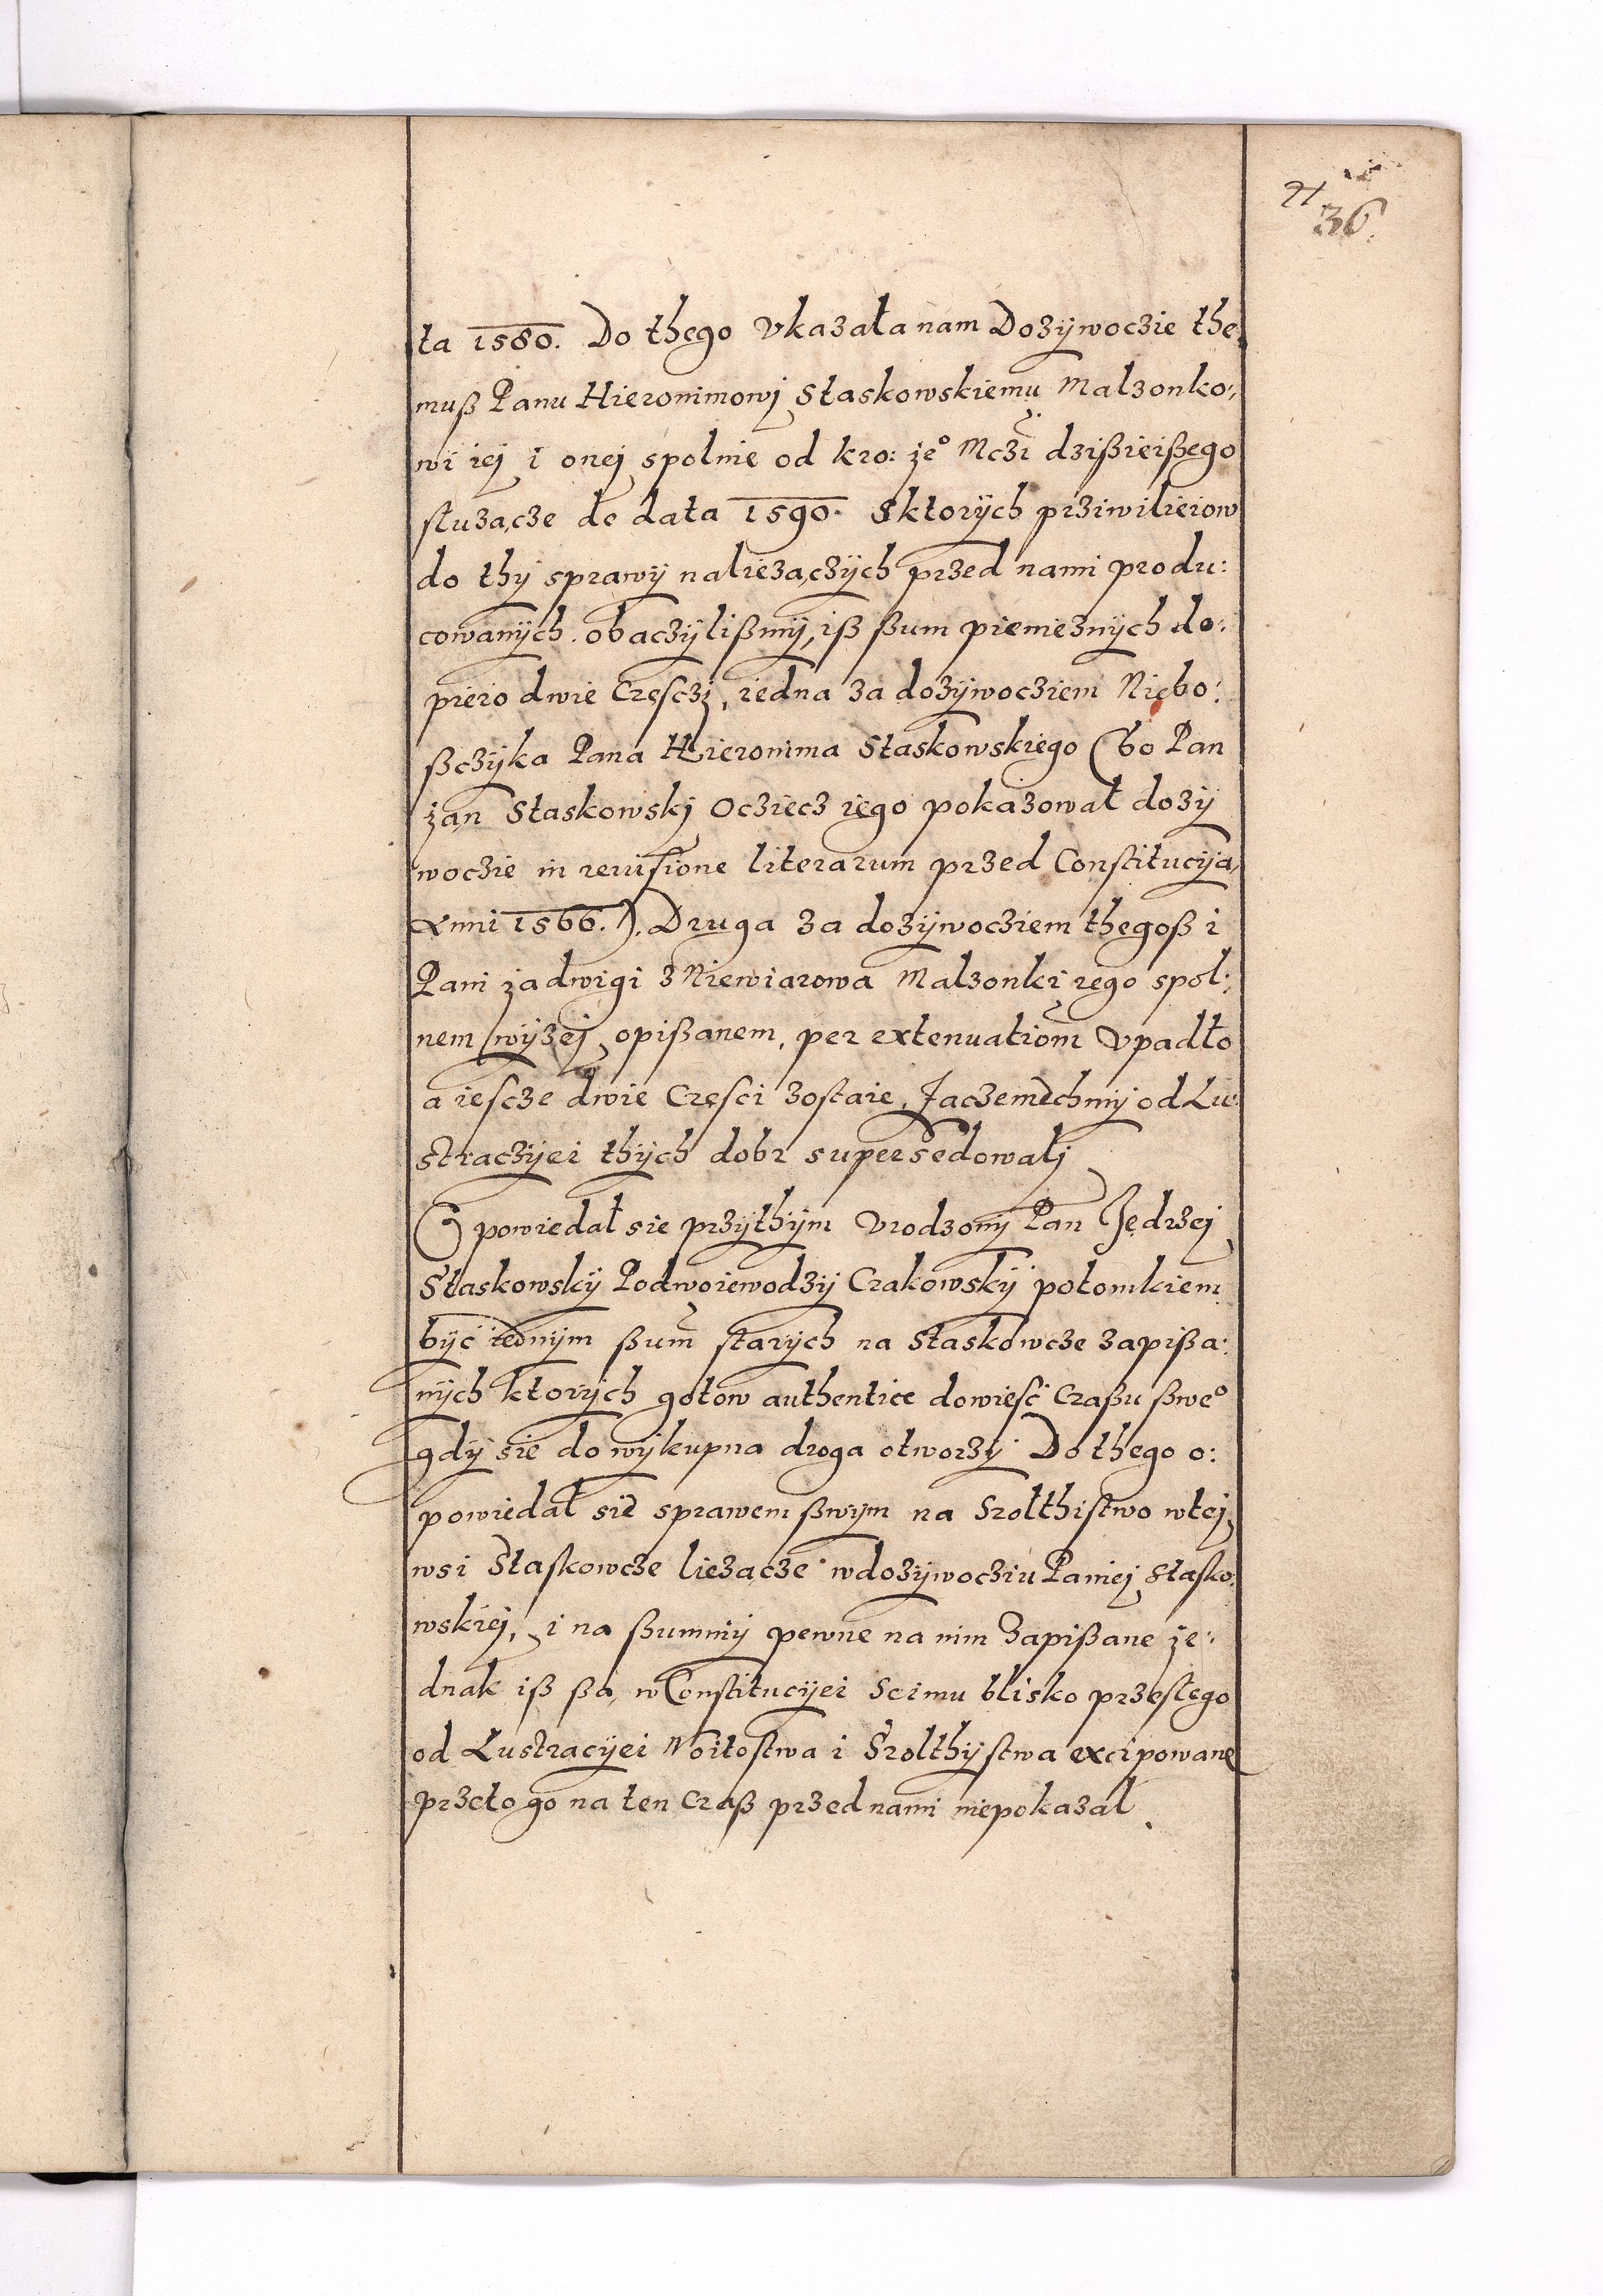 36.
ta 1580. Do thego vkazała nam Dozÿwoczie the,
muß Panu Hieronimowj Staskowskiemu Malzonko,
wi iej i onej spolnie od kro: je° Mczi dzißieißego
służącze de data 1590. Sktorÿch prziwilieiow
do thÿ sprawÿ nalieżączÿch przed nami produ:
cowanÿch. obaczÿlißmÿ, iß ßum pieniężnÿch do:
piero dwie Częsczj, iedna za dozÿwocziem Niebo:
ßczÿka Pana Hieronima Staskowskiego (bo Pan
Jan Staskowskj Ocziecz iego pokazował dozÿ
woczie in reuisione literarum przed Constitucÿą
Anni 1566.). Druga za dozÿwocziem thegoß i
Pani Jadwigi z Niewiarowa Malzonki iego spol:
nem wÿzej opißanem, per extenuationem vpadło
a iescze dwie Częsci zostaie, Zaczemechmÿ od Lu:
straczÿei thÿch dobr supersedowalj
Opowiedał sie przÿthÿm vrodzonÿ Pan Jędrzej
Staskowskÿ Podwoiewodzÿ Crakowskÿ potomkiem
bÿć iednÿm ßum starÿch na Staskowcze zapißa:
nÿch ktorÿch gotow authentice dowieść Czaßu ßwe°
gdÿ sie do wÿkupna droga otworzÿ. Do thego o:
powiedał sie sprawem ßwÿm na Szołthistwo wtej
wsi Staskowcze lieżącze wdozÿwocziu Paniej Stasko:
wskiej, i na ßummÿ pewne na nim Zapißane je:
dnak iß ßą, w Constitucÿei Seimu blisko przeßłego
od Lustracÿei Woitostwa i Szolthÿstwa excipowane
przeto go na ten Czaß przed nami niepokazał.